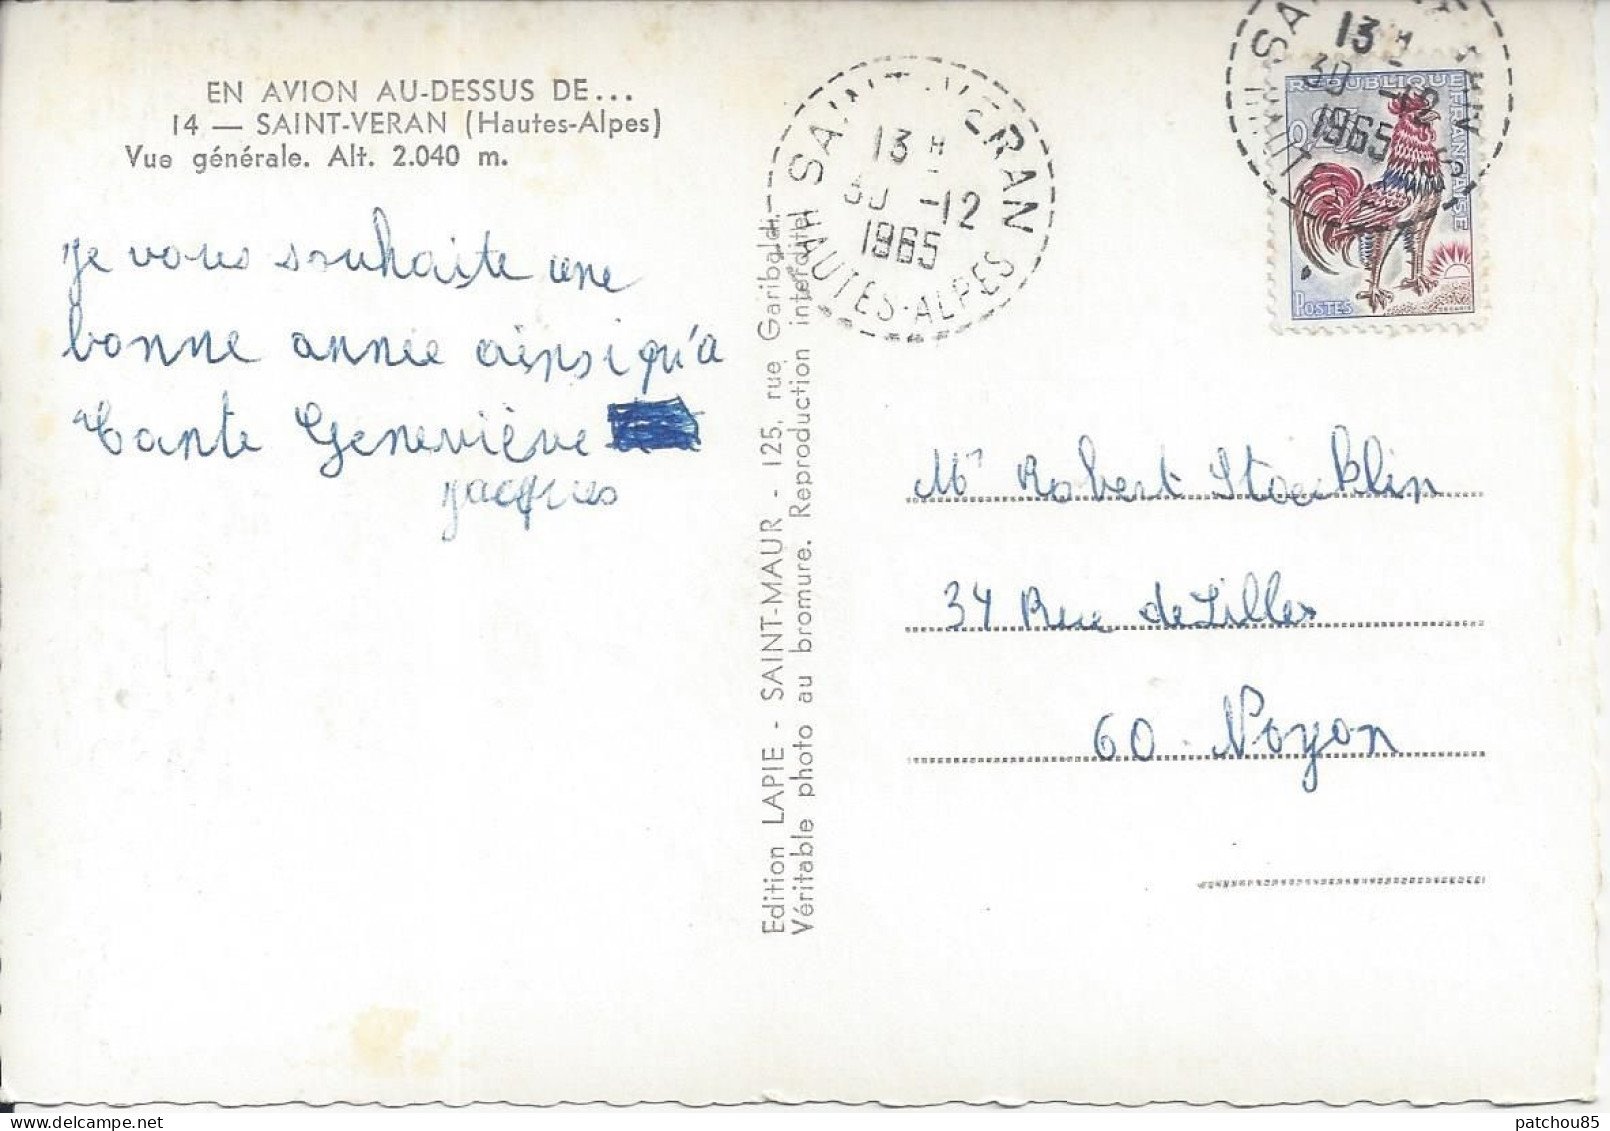 EN AVION AU-DESSUS DE...
14 — SAINT-VERAN (Hautes-Alpes)
Vue générale. Alt. 2.040 m.
je vous souhaite une
bonne année ainsi qu'a
Tante Geneviève
jacques
Edition LAPIE - SAINT-MAUR - 125, rue Garibaldi. -
Véritable photo au bromure. Reproduction interdite
SAINT-VERAN
13 H
30 -12
1965
HAUTES-ALPES
13 H
30 -12
1965
REPUBLIQUE FRANÇAISE
0,25
POSTES
Mr Robert Stoecklin
34 Rue de Lilles
60 Noyon
patchou85